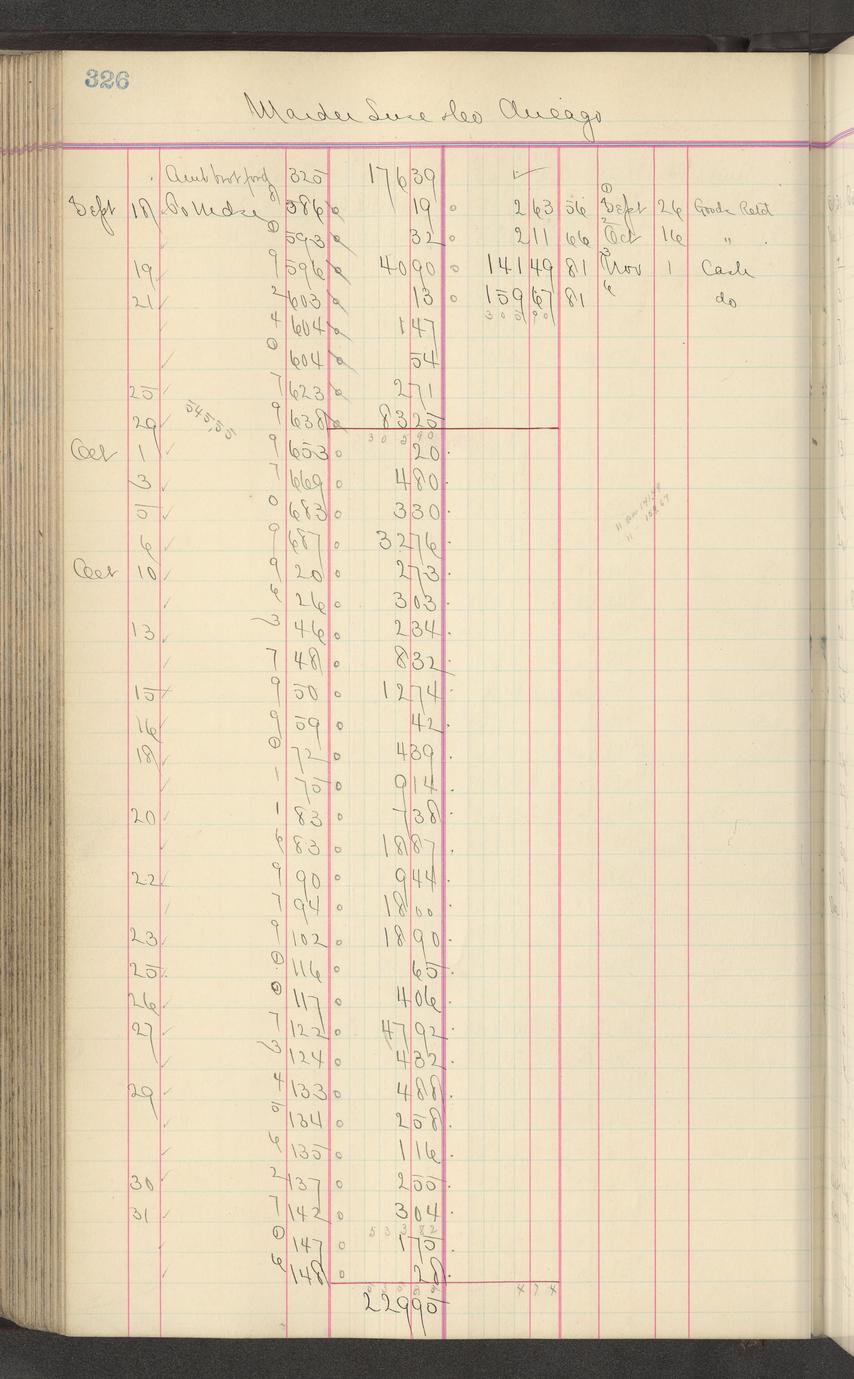 326
Marder Luse & Co Chicago
Amt brot ford 325 176 39 ✓
Sept 18 To Mdse 8 586 19 2 63 56 1 Sept 26 Goods Retd
0 593 32 2 11 66 2 Oct 16 "
19 9 596 40 90 141 49 81 3 Nov 1 Cash
21 2 603 13 159 67 81 do
4 604 1 47 305 90
0 604 54
25 7 623 2 71
29 545,55 9 638 83 25
305 90
Oct 1 9 653 20
3 7 669 4 80
5 0 683 3 30
6 9 687 32 76
Oct 10 9 20 2 73
6 26 3 03
13 3 46 2 34
7 48 8 32
15 9 50 12 74
16 9 59 42
18 0 72 4 39
1 75 9 14
20 1 83 7 38
6 83 18 87
22 9 90 9 44
7 94 18 00
23 9 102 18 90
25 0 116 65
26 0 117 4 06
27 7 122 47 92
3 124 4 32
29 4 133 4 88
5 134 2 58
6 135 1 16
30 2 137 2 55
31 7 142 3 04
533 82
0 147 1 75
6 148 28
229 95